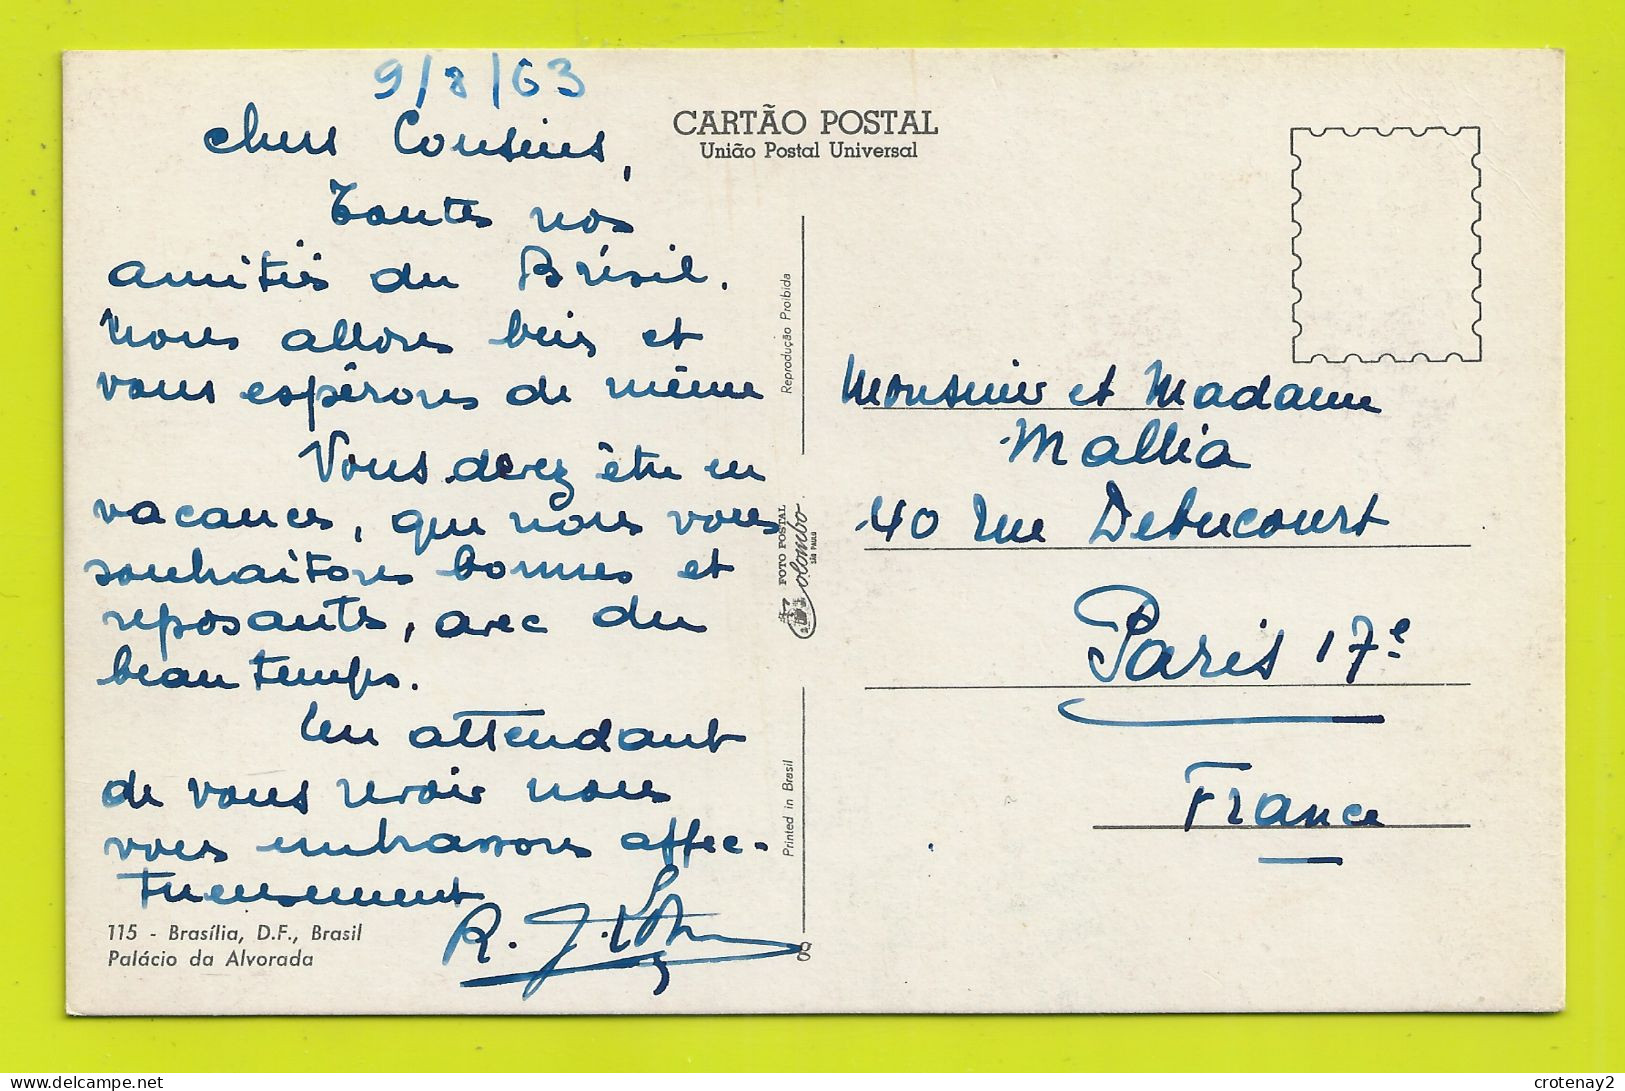 9/8/63
chers Cousins,
Toutes nos
amitiés du Brésil.
Nous allons bien et
vous espérons de même
Vous devez être en
vacances, que nous vous
souhaitons bonnes et
reposantes, avec du
beau temps.
En attendant
de vous revoir nous
vous embrassons affec-
tueusement
R. J.
115 - Brasília, D.F., Brasil
Palácio da Alvorada
CARTÃO POSTAL
União Postal Universal
Reprodução Proibida
FOTO POSTAL
Colombo
SÃO PAULO
Printed in Brasil
g
Monsieur et Madame
Mallia
40 rue Debucourt
Paris 17e
France
crotenay2